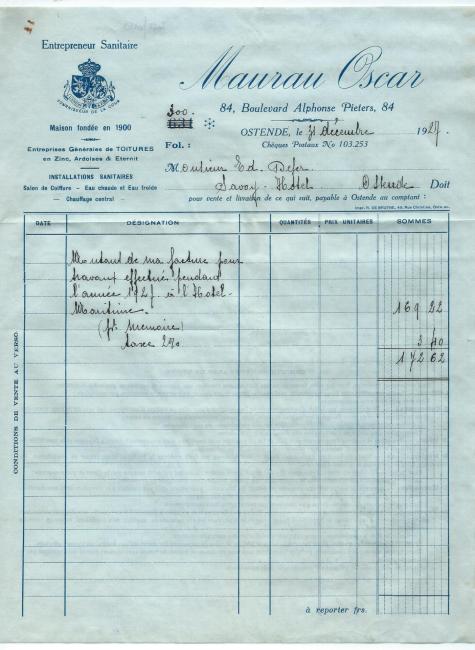 Entrepreneur Sanitaire
FOURNISSEUR DE LA COUR
Maison fondée en 1900
Entreprises Générales de TOITURES
en Zinc, Ardoises & Eternit
INSTALLATIONS SANITAIRES
Salon de Coiffure - Eau chaude et Eau froide
Chauffage central
Maurau Oscar
84, Boulevard Alphonse Pieters, 84
300.
631
OSTENDE, le 31 décembre 1927.
Fol. :
Chèques Postaux No 103.253
Monsieur Ed. Defer
Savoy-Hotel Ostende Doit
pour vente et livraison de ce qui suit, payable à Ostende au comptant :
DATE DESIGNATION QUANTITÉS PRIX UNITAIRES SOMMES
Montant de ma facture pour
travaux effectués pendant
l'année 1927 à l'Hotel-
Maritime. 169 22
(pr Memoire)
taxe 2% 3 40
172 62
CONDITIONS DE VENTE AU VERSO
à reporter frs.